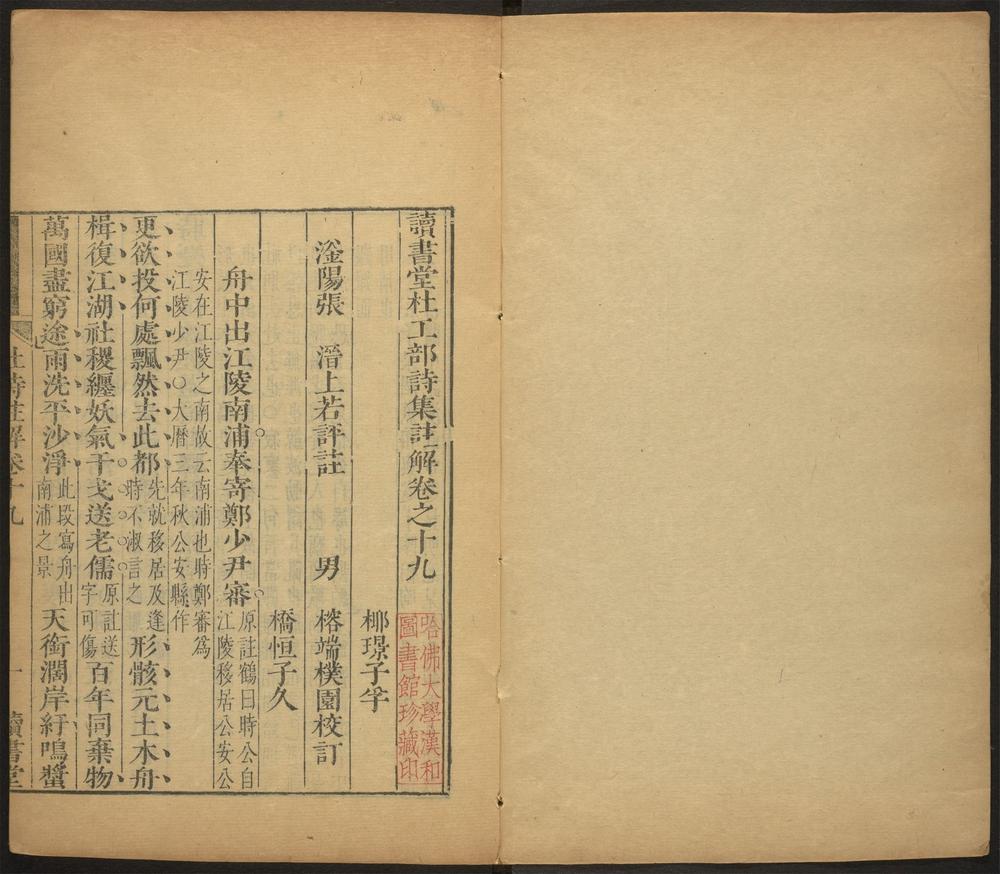 讀書堂杜工部詩集註解卷之十九
哈佛大學漢和
圖書館珍藏印
榔璟子孚
滏陽張　溍上若評註　男　榕端樸園校訂
橋恒子久
舟中出江陵南浦奉寄鄭少尹審
原註鶴曰時公自
江陵移居公安公
安在江陵之南故云南浦也時鄭審爲
江陵少尹○大曆三年秋公安縣作
更欲投何處飄然去此都
先就移居及逢
時不淑言之
形骸元土木舟
楫復江湖社稷纏妖氣干戈送老儒
原註送
字可傷
百年同棄物
萬國盡窮途雨洗平沙淨
此段寫舟出
南浦之景
天銜濶岸紆鳴螿
杜詩註解卷十九
一
讀書堂